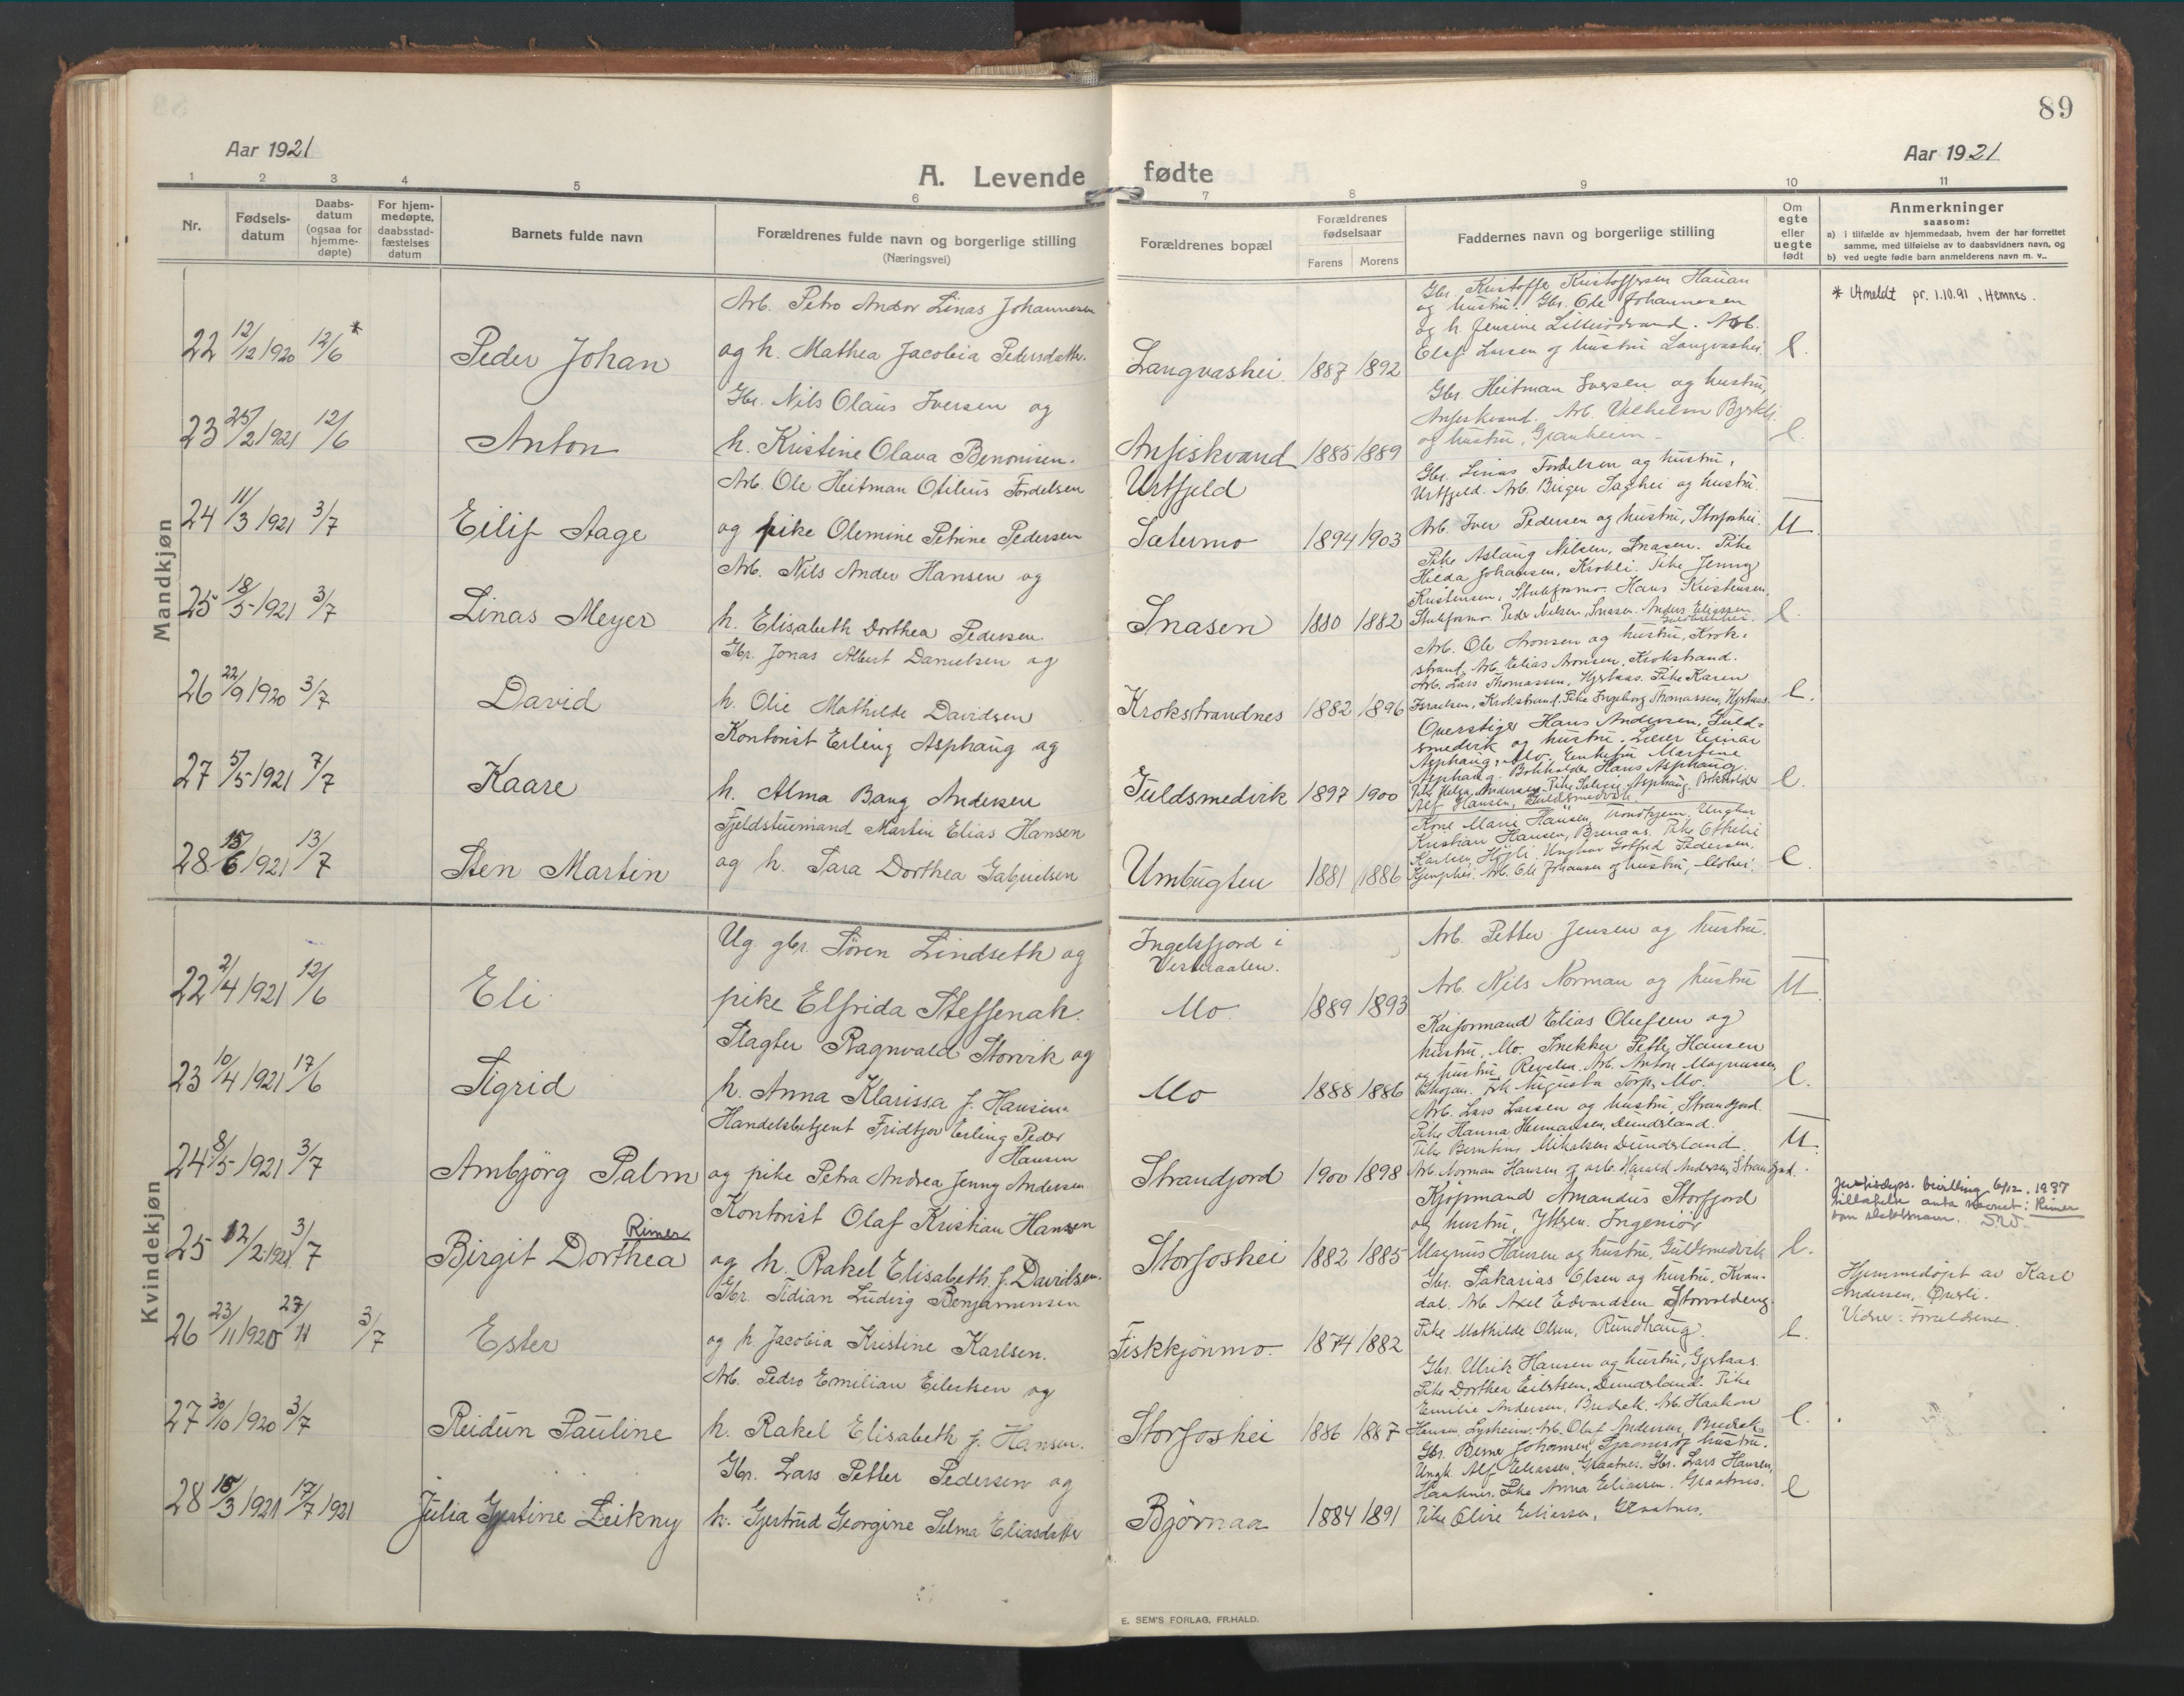 89
Aar 1921
A. Levende fødte
Aar 1921
1 2 3 4 5 6 7 8 9 10 11
Nr.
Fødsels-
datum
Daabs-
datum
(ogsaa for
hjemme-
døpte)
For hjem-
medøpte,
daabsstad-
fæstelses
datum
Barnets fulde navn
Forældrenes fulde navn og borgerlige stilling
(Næringsvei)
Forældrenes bopæl
Forældrenes
fødselsaar
Farens Morens
Faddernes navn og borgerlige stilling
Om
egte
eller
uegte
født
Anmerkninger
saasom:
a) i tilfælde av hjemmedaab, hvem der har forrettet
samme, med tilføielse av to daabsvidners navn, og
b) ved uegte fødte barn anmelderens navn m. v..
Mandkjøn
22 12/12 1920 12/6 *
Peder Johan
Arb. Petro Andor Linas Johannesen
og h. Mathea Jacobia Pedersdatter.
Langvashei 1887 1892
Gbr. Kristoffer Kristoffersen Hauan
og hustru. Gbr. Ole Johannesen
og h. Jensine Arb.
Olaf Larsen og hustru Langvashei
E.
* Utmeldt pr. 1.10.91, Hemnes.
23 25/2 1921 12/6
Anton
Gbr. Nils Olaus Iversen og
h. Kristine Olava Benonisen.
Anfiskvand 1885 1889
Gbr. Heitman Iversen og hustru,
Anfiskvand. Arb. Vilhelm
og hustru, Granheim
E.
24 11/3 1921 3/7
Eilif Aage
Arb. Ole Heitman Otileus Fordelsen
og pike Olemine Petrine Pedersen
Urtfjeld
Sætermo 1894 1903
Gbr. Linas Fordelsen og hustru,
Urtfjeld. Arb. Birger Saghei og hustru.
Arb. Iver Pedersen og hustru, Storfoshei.
U.
25 18/5 1921 3/7
Linas Meyer
Arb. Nils Ander Hansen og
h. Elisabeth Dorthea Pedersen
Snasen 1880 1882
Pike Aslaug Nilsen, Snasen. Pike
Hilda Johansen, Krokli. Pike Jenny
Kristensen, Stubformo. Hans Kristensen,
Stubformo. Peder Nilsen, Snasen. Anders Eliassen
E.
26 22/9 1920 3/7
David
Gbr. Jonas Albert Danielsen og
h. Olie Mathilde Davidsen
Krokstrandnes 1882 1896
Arb. Ole Aronsen og hustru, Krok-
strand, Arb. Elias Aronsen, Krokstrand.
Arb. Lars Thomassen, Hjertaas. Pike Karen
Israelsen, Krokstrand, Pike Ingeborg Thomassen, Hjertaas.
E.
27 5/5 1921 7/7
Kaare
Kontorist Erling Asphaug og
h. Alma Bang Andersen
Guldsmedvik 1897 1900
Overstiger Hans Andersen, Guld-
smedvik og hustru. Lærer Einar
Asphaug, Mo. Enkefru Martine
Asphaug. Bokholder Hans Asphaug.
Pike Helga Andersen. Pike Asphaug. Bokholder
Alf Hansen, Guldsmedvik
E.
28 15/6 1921 13/7
Sten Martin
Fjeldstuemand Martin Elias Hansen
og h. Sara Dorthea Gabrielsen
Umbugten 1881 1886
Kone Marie Hansen, Trondhjem. Ungkar
Kristian Hansen, Brenaas. Pike Othelie
Karlsen, Høgli. Ungkar Gotfred Pedersen,
Arb. Ole Johansen og hustru, Mohei.
E.
Kvindekjøn
22 2/4 1921 12/6
Eli
Ug. gbr. Søren Lindseth og
pike Elfrida Steffenak.
Ingelsfjord i
Vesteraalen.
Mo. 1889 1893
Arb. Petter Jensen og hustru.
Arb. Nils Norman og hustru
U.
23 10/4 1921 17/6
Sigrid
Slagter Ragnvald Storvik og
h. Anna Klarissa f. Hansen
Mo 1888 1886
Kaiformand Elias Olufsen og
hustru, Mo. Snekker Petter Hansen
og hustru, Revelen. Arb. Anton Magnussen,
Frk Augusta Torp, Mo.
E.
24 8/5 1921 3/7
Ambjörg Palm
Handelsbetjent Fridtjov Erling Peder
Hansen
og pike Petra Andrea Jenny Andersen
Strandjord 1900 1898
Arb. Lars Larsen og hustru, Strandjord.
Pike Hanna Hermansen, Dunderland.
Pike Berntine Mikalsen Dunderland.
Arb. Norman Hansen og arb. Harald Andersen, Strandjord.
U.
25 12/2 1921 3/7
Rimer
Birgit Dorthea
Kontorist Olaf Kristian Hansen
og h. Rakel Elisabeth f. Davidsen.
Storfoshei 1882 1885
Kjøpmand Amandus Storfjord
og hustru, Yttren. Ingeniør
Magnus Hansen og hustru, Guldsmedvik
E.
Justisdeps. bevilling 6/12. 1937
tillatelse anta navnet: Rimer
som slektsnavn.
26 23/11 1920 27/11 3/7
Ester
Gbr. Tidian Ludvig Benjaminsen
og h. Jacobia Kristine Karlsen.
Fiskkjønmo. 1874 1882
Gbr. Sakarias Olsen og hustru, Kvan-
dal. Arb. Axel Edvardsen Storvoldeng.
Pike Mathilde Olsen, Rundhaug.
E.
Hjemmedøpt av Karl
Andersen, Øverli.
Vidner: Forældrene.
27 30/10 1920 3/7
Reidun Pauline
Arb. Pedro Emilian Eilertsen og
h. Rakel Elisabeth f. Hansen.
Storfoshei 1886 1887
Gbr. Ulrik Hansen og hustru,
Pike Dorthea Eilertsen, Dunderland. Pike
Emilie Andersen, Arb. Haakon
Hansen, Lysheim. Arb. Olaf Andersen,
E.
28 15/3 1921 17/7 1921
Julia Gjertine Leikny
Gbr. Lars Petter Pedersen og
h. Gjertrud Georgine Selma Eliasdatter
Bjørnaa 1884 1891
Gbr. Johansen og hustru.
Ungk. Alf Eliassen, Graatnes. Gbr. Lars Hansen,
Haaknes. Pike Anna Eliassen. Graatnes.
Pike Oline Eliassen, Graatnes.
E
E. SEM'S FORLAG, FR.HALD.